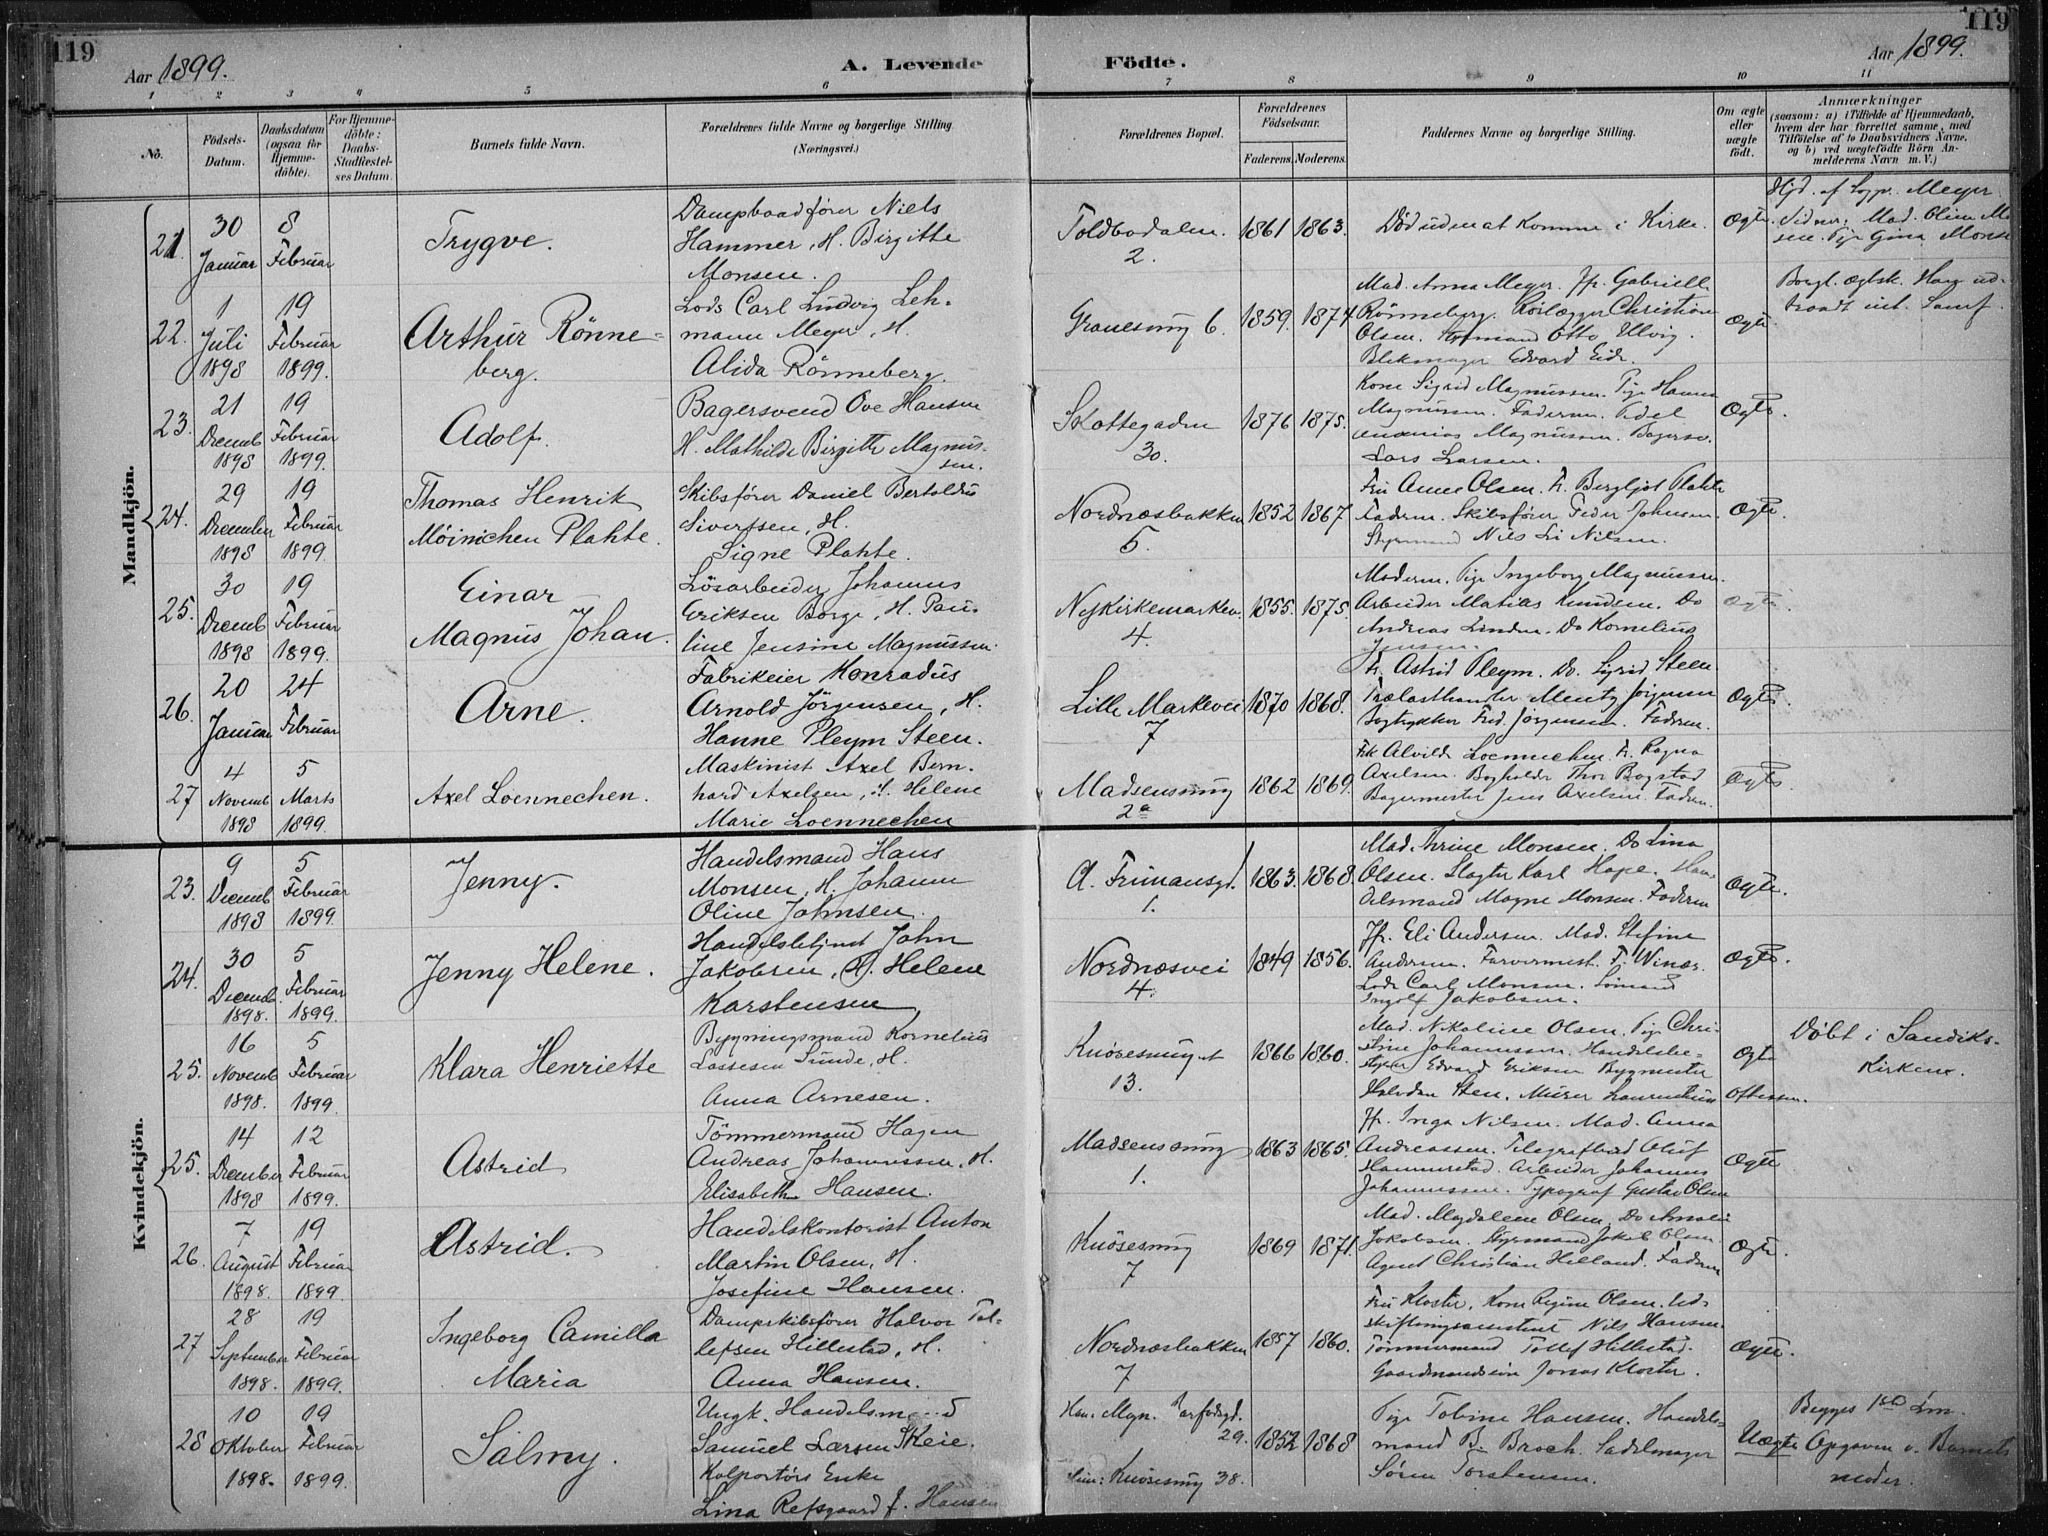 119
119
Aar 1899.
A. Levende
Födte.
Aar 1899.
1 2 3 4 5 6 7 8 9 10 11
No.
Födsels-
Datum.
Daabsdatum
(ogsaa for
Hjemme-
döbte).
For Hjemme-
döbte:
Daabs-
Stadfæstel-
ses Datum.
Barnets fulde Navn.
Forældrenes fulde Navne og borgerlige Stilling
(Næringsvei.)
Forældrenes Bopæl.
Forældrenes
Födselsaar.
Faderens. Moderens.
Faddernes Navne og borgerlige Stilling.
Om ægte
eller
uægte
födt.
Anmærkninger
(saasom: a) i Tilfælde af Hjemmedaab,
hvem der har forrettet samme, med
Tilföielse af to Daabsvidners Navne,
og b) ved uægtefödte Börn An-
melderens Navn m. V.)
Mandkjön.
21. 30 Januar
8 Februar
Trygve.
Dampbaadförer Niels
Hammer, H. Birgitte
Monsen.
Toldbodalm.
2.
1861 1863.
Död uden at komme i Kirke.
Ægte
Hjd. af Sogpr. Meyer
Vidner: Mad. Oline Mo
sen. Pige Gina Monse
22. 1 Juli 1898
19 Februar 1899.
Arthur Rönne-
berg.
Lods Carl Ludvig Leh-
mann Meyer, H.
Alida Rönneberg.
Granesmug 6.
1859. 1874
Mad. Anna Meyer. Jfr. Gabrielle
Rönneberg. Rörlægger Christian
Olsen. Otto Ulvig.
Blikmager Edvard Eide.
Ægte
Borgl. ægtsk. Han ud-
traadt int. Samf.
23. 21 Decemb 1898
19 Februar 1899.
Adolf.
Bagersvend Ove Hansen
H. Mathilde Birgitte Magnus-
sen.
Skottegaden
30.
1876 1875.
Kone Sigrid Magnussen. Pige Hanna
Magnussen. Faderen. Pedel
Magnussen. Bagersv.
Lars Larsen.
Ægte.
24. 29 December 1898
19 Februar 1899.
Thomas Henrik
Möinichen Plahte.
Skibsförer Daniel Bertoldus
Sivertsen, H.
Signe Plahte.
Nordnæsbakken
5.
1852 1867
Fru Anne Olsen. Fr. Bergljot Plahte
Faderen. Skibsförer Peder Johnsen.
Styrmand Nils Li Nilsen.
Ægte.
25. 30 Decemb 1898
19 Februar 1899.
Einar
Magnus Johan.
Lösarbeider Johannes
Eriksen Borge, H. Pau-
line Jensine Magnussen.
Nykirkemarken.
4.
1855. 1875.
Moderen. Pige Ingeborg Magnussen.
Arbeider Matias Knudsen. Do
Andreas Linden. Do Kornelius
Jensen.
Ægte
26. 20 Januar
24 Februar
Arne.
Fabrikeier Konradus
Arnold Jörgensen, H.
Hanne Pleym Steen.
Lille Markevei
7
1870 1868.
Fr. Astrid Pleym. Do. Sigrid Steen
Trælasthandler Mentz Jörgensen
Bogtrykker Fred. Jorgensen. Faderen.
Ægte
27 4 Novemb 1898
5 Marts 1899.
Axel Loennechen.
Maskinist Axel Bern-
hard Axelsen, H. Helene
Marie Loennechen
Madsensmug
2a
1862 1869.
Frk Alvilde Loennechen. Fr. Ragna
Axelsen. Bogholder Thor Bogstad
Bagermester Jens Axelsen. Faderen.
Ægte.
Kvindekjön.
23. 9 Decemb 1898
5 Februar 1899.
Jenny.
Handelsmand Hans
Monsen, H. Johanne
Oline Johnsen.
C. Frimansgd.
1.
1863. 1868.
Mad. Trine Monsen. Do Lina
Olsen. Slagter Karl Hope. Han-
delsmand Magne Monsen. Faderen
Ægte.
24. 30 Decemb. 1898.
5 Februar 1899.
Jenny Helene.
Handelsbetjent John
Jakobsen, H. Helene
Karstensen
Nordnæsvei
4.
1849 1856.
Jfr. Eli Andersen. Mad. Stefine
Andersen. Farvermest. F. Winær.
Lods Carl Monsen. Sömand
Ingolf Jakobsen.
Ægte.
25. 16 Novemb 1898.
5 Februar 1899.
Klara Henriette
Bygningsmand Kornelius
Lassesen Sunde, H.
Anna Arnesen.
Knösesmuget
13.
1866 1860.
Mad. Nikoline Olsen. Pige Chri-
stine Johannessen. Handelsbe-
styrer Edvard Eriksen Bygmester
Halvdan Sten. Murer Laurentius Oftessen.
Ægte
Döbt i Sandviks-
Kirken.
25. 14 December 1898
12 Februar 1899.
Astrid
Tömmermand Hagen
Andreas Johannessen, H.
Elisabeth Hansen.
Madsensmug
1.
1863 1865.
Jfr. Inga Nilsen. Mad. Anna
Andreassen. Telegrafbud Oluf
Hammerstad. Arbeider Johannes
Johannessen. Typograf Gustav Olsen
Ægte
26. 7 August 1898.
19 Februar 1899.
Astrid.
Handelskontorist Anton
Martin Olsen, H.
Josefine Hansen.
Knösesmug
7
1869 1871.
Mad. Magdalene Olsen. Do Amalie
Jakobsen. Styrmand Jakob Olsen.
Agent Christian Helland. Faderen
Ægte.
27 28 September 1898.
19 Februar 1899.
Ingeborg Camilla
Maria
Dampskibsförer Halvor Tol-
lefsen Hillestad, H.
Anna Hansen.
Nordnæsbakken
7
1857 1860.
Fru Kloster, Kone Regine Olsen. Ud-
skiftningsassistent Nils Hansen.
Tömmermand Tollef Hillestad.
Gaardmandssön Jonas Kloster.
Ægte.
28 10 Oktober 1898.
19 Februar 1899.
Salmy.
Ungk. Handelsmand
Samuel Larsen Skeie.
Kolportörs Enke
Lina Refsgaard f. Hansen
Han: Magn. Barfodsgd.
29.
Hun: Knösesmug 38.
1852 1868
Pige Tobine Hansen. Handels-
mand B. Broch. Sadelmager
Sören Torstensen.
Uægte
Begges 1ste Lm.
Opgaven v. Barnets
moder.